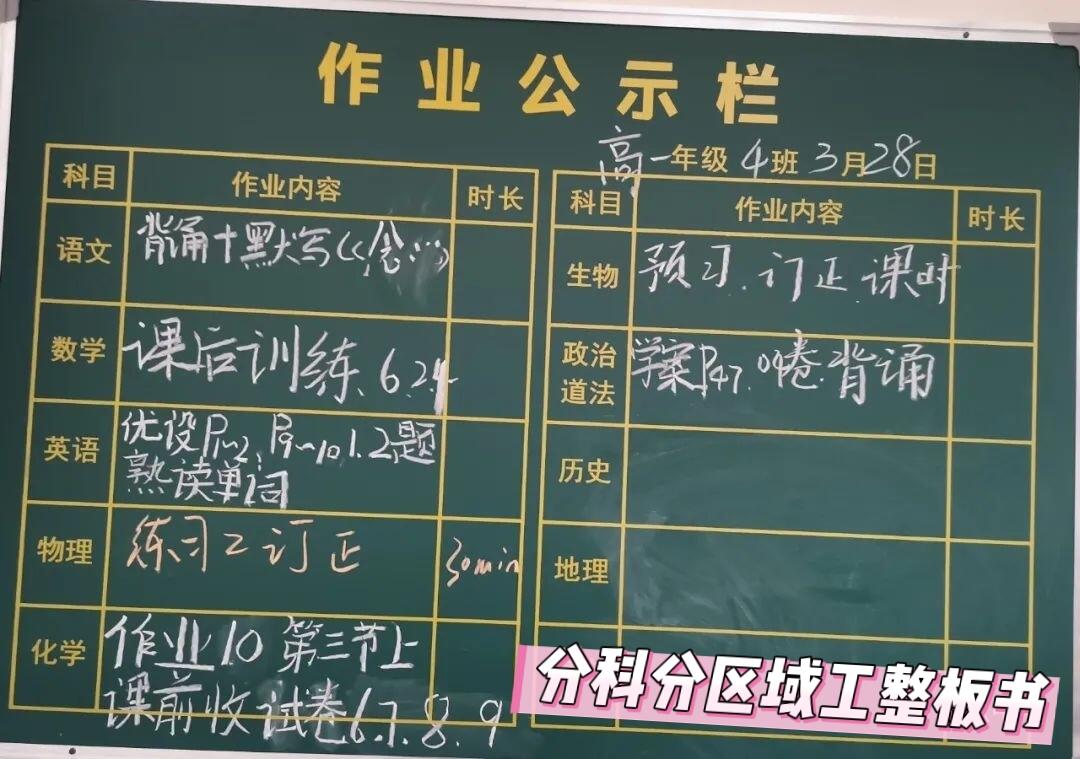 作业公示栏
高一年级 4班 3月28日
科目 作业内容 时长
语文 背诵+默写《念…》
数学 课后训练、6.24
英语 优设P1~2, P9~10 1.2题
熟读单词
物理 练习2 订正 30min
化学 作业10 第三节上
课前收试卷6.7.8.9
科目 作业内容 时长
生物 预习.订正.课时
政治道法 学案P47. 卷.背诵
历史
地理
分科分区域工整板书